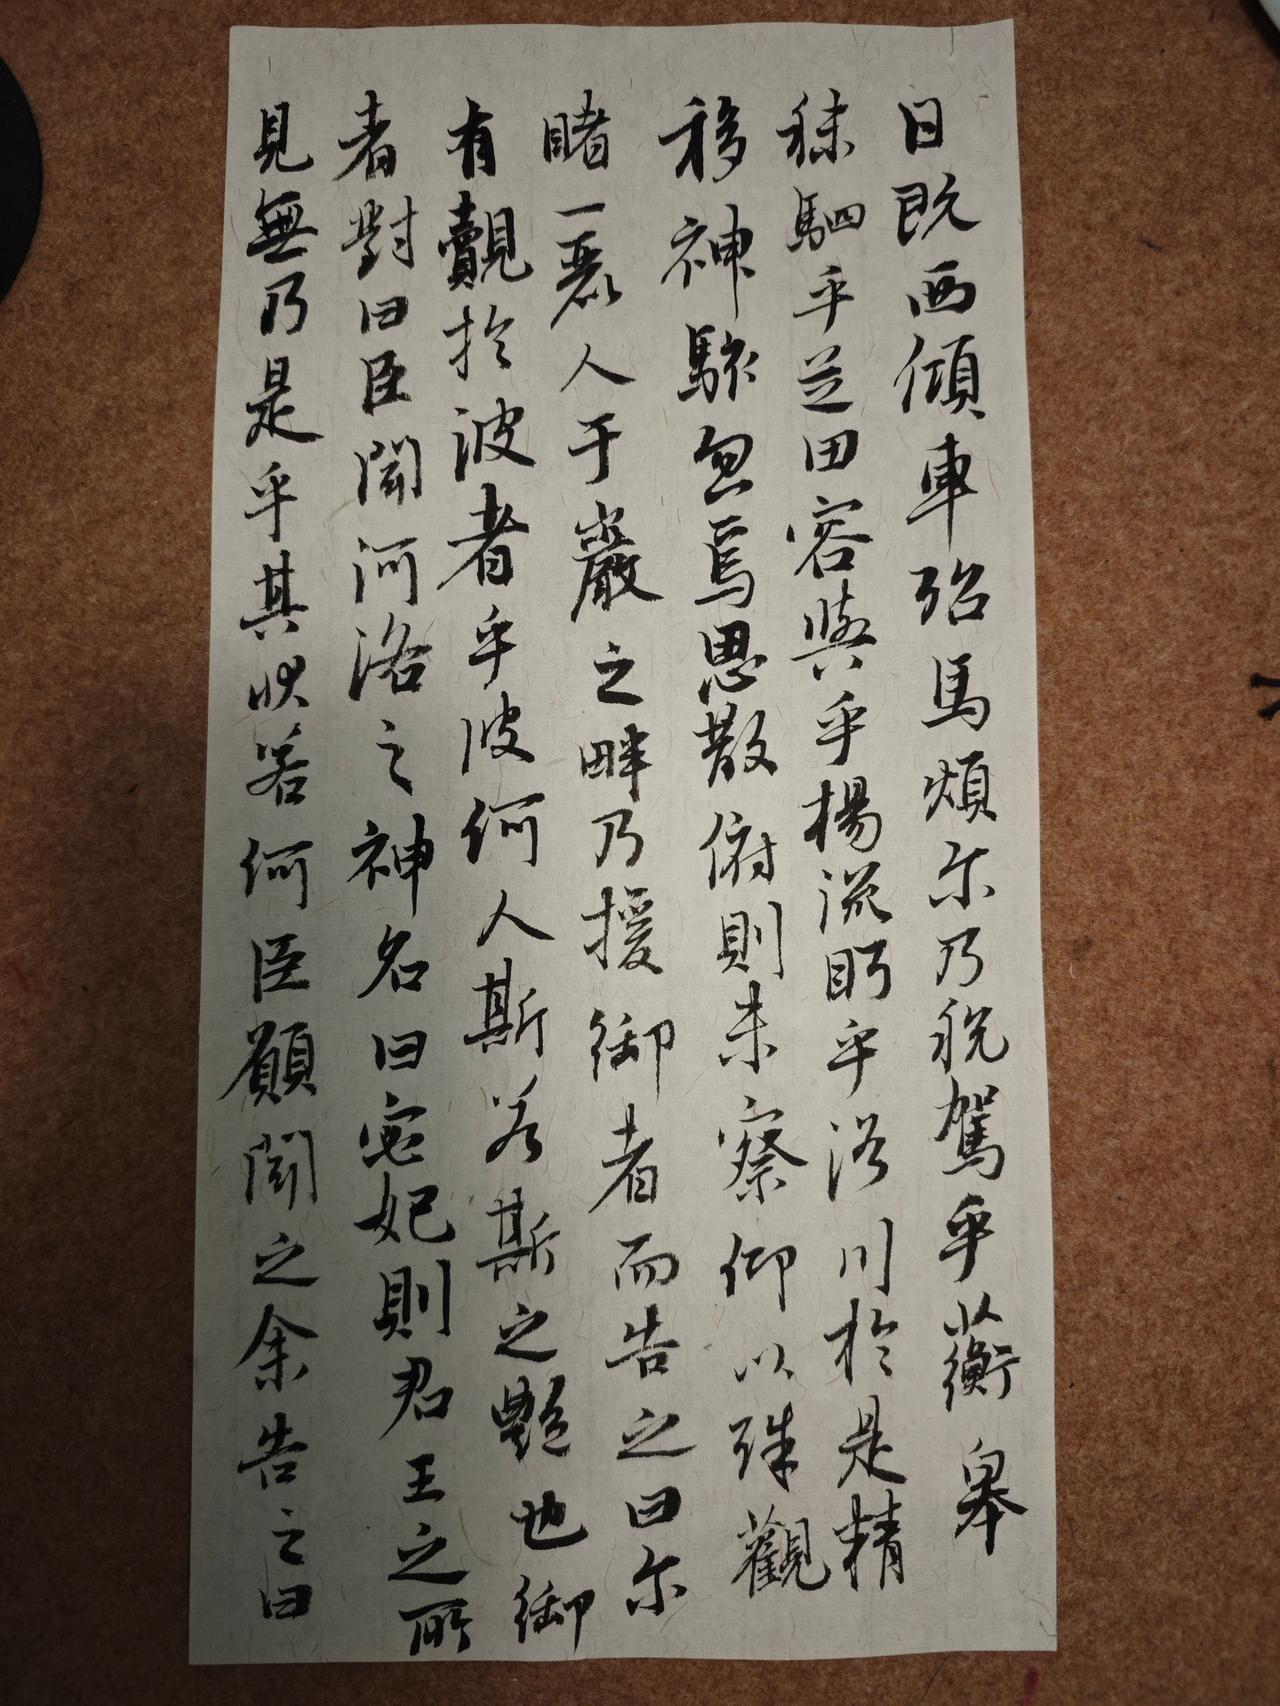 日既西傾車殆馬煩尔乃税駕乎蘅皋
秣駟乎芝田容與乎楊流眄乎洛川於是精
移神駭忽焉思散俯則未察仰以殊觀
睹一麗人于巖之畔乃援御者而告之曰尔
有覿於波者乎彼何人斯若斯之艷也御
者對曰臣聞河洛之神名曰宓妃則君王之所
見無乃是乎其狀若何臣願聞之余告之曰